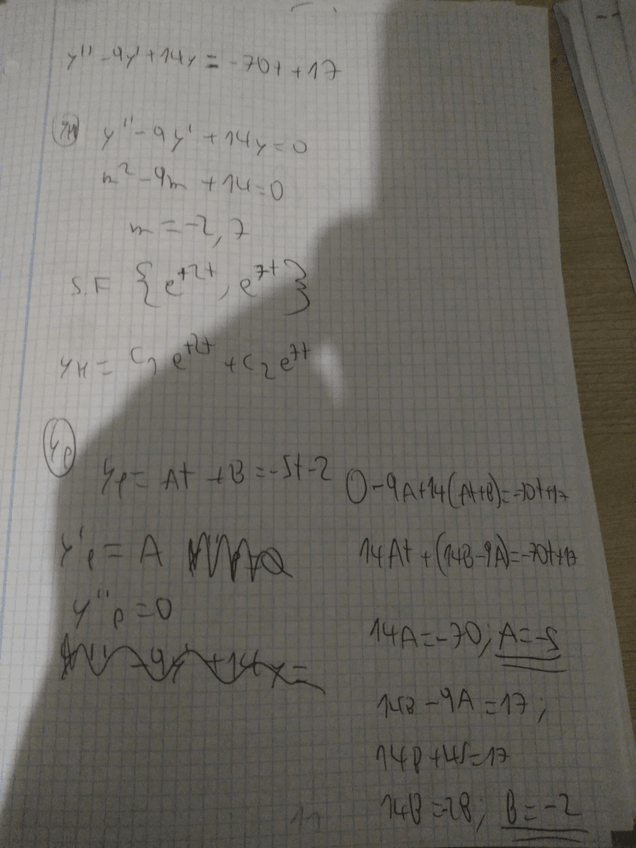 y'' - 9y' + 14y = -70t + 17
yH y'' - 9y' + 14y = 0
m² - 9m + 14 = 0
m = -2, 7
S.F {e^{+2t}, e^{7t}}
yH = C₁ e^{+2t} + C₂ e^{7t}
yp
yp = At + B = -5t - 2
y'p = A
y''p = 0
0 - 9A + 14(At + B) = -70t + 17
14At + (14B - 9A) = -70t + 17
14A = -70; A = -5
14B - 9A = 17;
14B + 45 = 17
14B = -28; B = -2